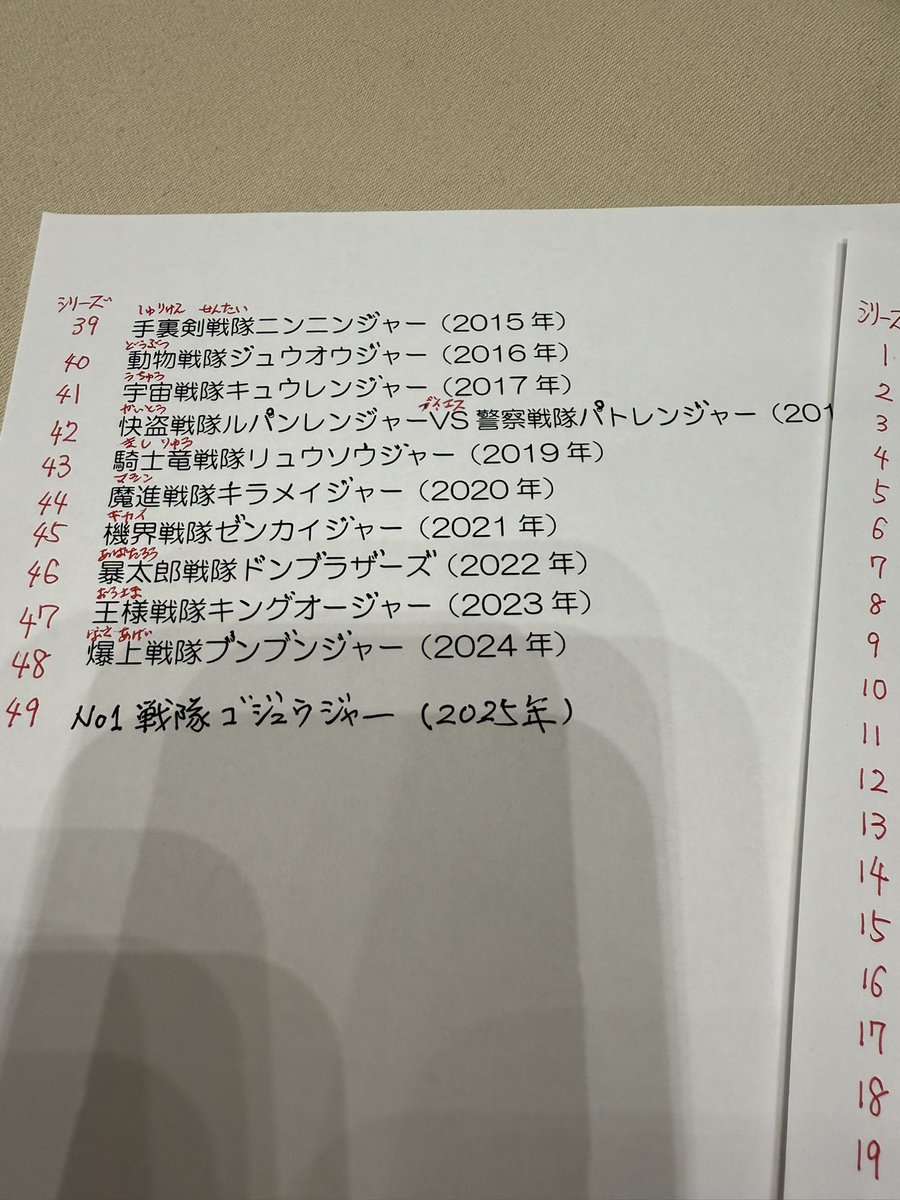 シリーズ
しゅりけん せんたい
39 手裏剣戦隊ニンニンジャー（2015年）
どうぶつ
40 動物戦隊ジュウオウジャー（2016年）
うちゅう
41 宇宙戦隊キュウレンジャー（2017年）
かいとう ブイエス
42 快盗戦隊ルパンレンジャーVS警察戦隊パトレンジャー（201
きし りゅう
43 騎士竜戦隊リュウソウジャー（2019年）
マシン
44 魔進戦隊キラメイジャー（2020年）
キカイ
45 機界戦隊ゼンカイジャー（2021年）
あばたろう
46 暴太郎戦隊ドンブラザーズ（2022年）
おうさま
47 王様戦隊キングオージャー（2023年）
ばく あげ
48 爆上戦隊ブンブンジャー（2024年）
49 No1戦隊ゴジュウジャー（2025年）
シリーズ
1
2
3
4
5
6
7
8
9
10
11
12
13
14
15
16
17
18
19